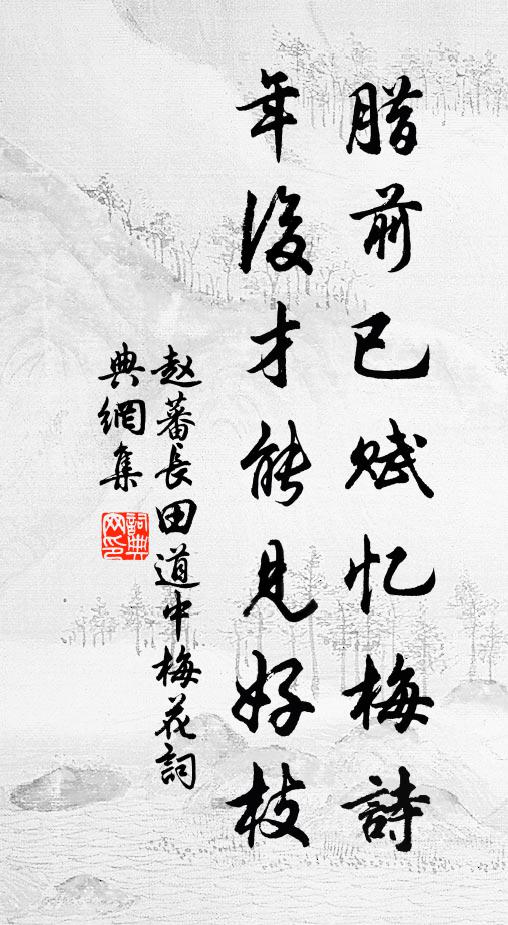 腊前已赋忆梅詩
年後才能見好枝
赵蕃長田道中梅花詞
典網集
詞典
网印